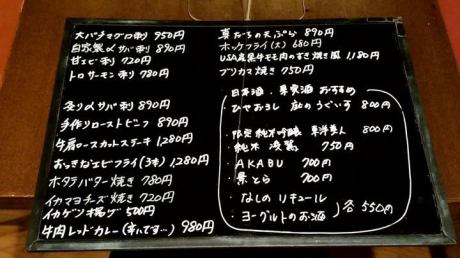 大バチマグロ刺 950円
自家製〆サバ刺 890円
甘エビ刺 720円
トロサーモン刺 780円
炙り〆サバ刺 890円
手作りローストビーフ 890円
牛肩ロースカットステーキ 1,280円
おっきなエビフライ(3本) 1,280円
ホタテバター焼き 780円
イカマヨチーズ焼き 720円
イカゲソ揚げ 500円
牛肉レッドカレー(辛いです…) 980円
真だちの天ぷら 890円
ホッケフライ(大) 680円
USA産黒牛モモ肉のすき焼き風 1,180円
ブリカマ焼き 750円
日本酒・果実酒 おすすめ
ひやおろし 庭のうぐいす 800円
・限定純米吟醸 東洋美人 800円
・純米 凌駕 750円
・AKABU 700円
・景とら 700円
・なしのリキュール
・ヨーグルトのお酒
各550円